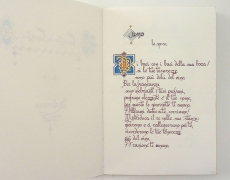 la sposa
i baci con i baci della sua bocca!
sì, le tue tenerezze
sono più dolci del vino.
Per la fragranza
sono inebrianti i tuoi profumi,
profumo olezzante è il tuo nome,
per questo le giovinette ti amano.
Attirami dietro a te, corriamo!
M'introduca il re nelle sue stanze:
gioiremo e ci rallegreremo per te,
ricorderemo le tue tenerezze
più del vino.
A ragione ti amano